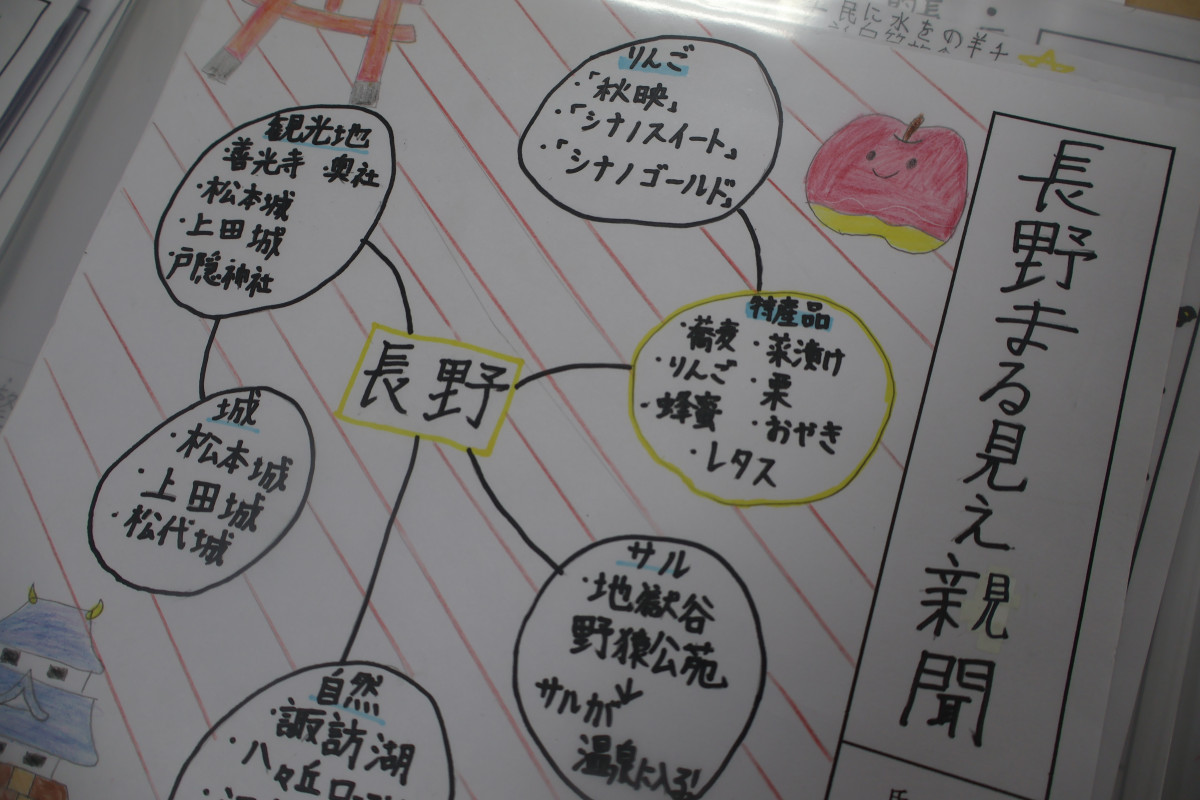 長野まる見え親聞
りんご
・「秋映」
・「シナノスイート」
・「シナノゴールド」
観光地
善光寺 ・奥社
・松本城
・上田城
戸隠神社
特産品
・蕎麦 ・菜漬け
・りんご ・栗
・蜂蜜 ・おやき
・レタス
長野
城
・松本城
・上田城
・松代城
サル
・地獄谷
野猿公苑
サルが
温泉に入る!
自然
・諏訪湖
民に水をの半千